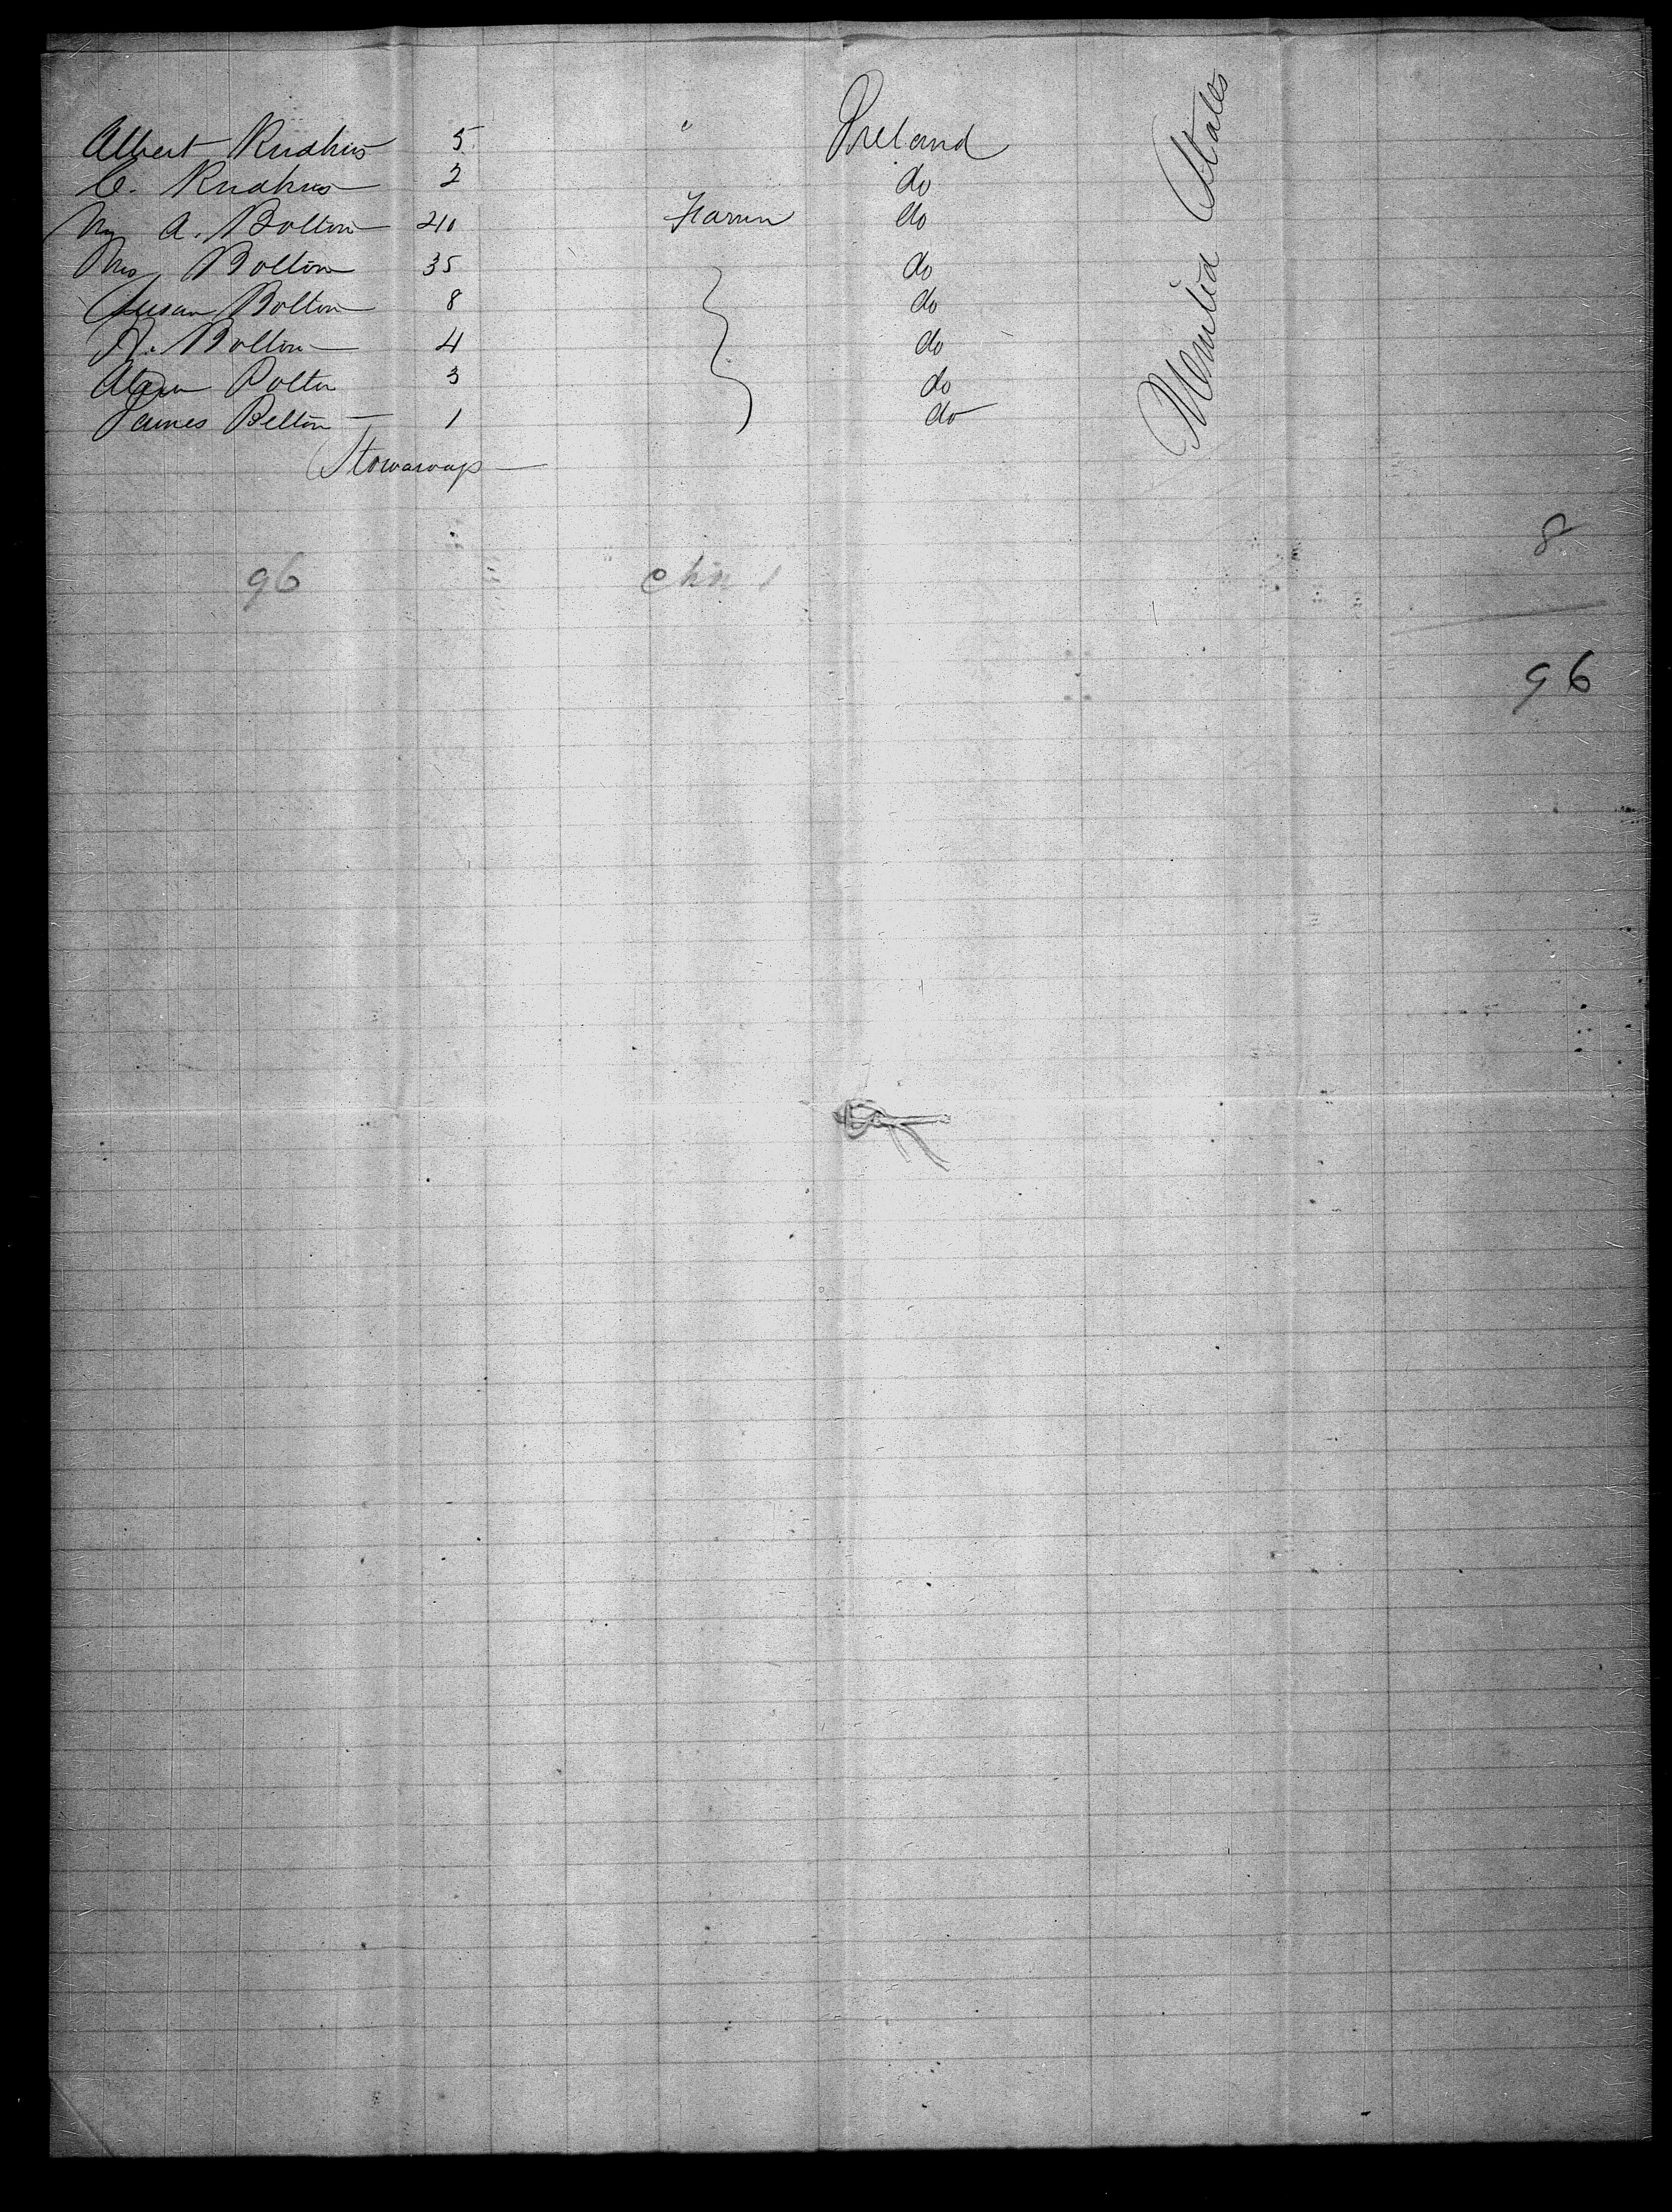 Albert 5 " Ireland
C. 2 do
A. Bolton 40 Farmer do
Mrs Bolton 35 do
Susan Bolton 8 do
A. Bolton 4 do
Bolton 3 do
James Bolton 1 do
Stowaways
United States
8
96
96